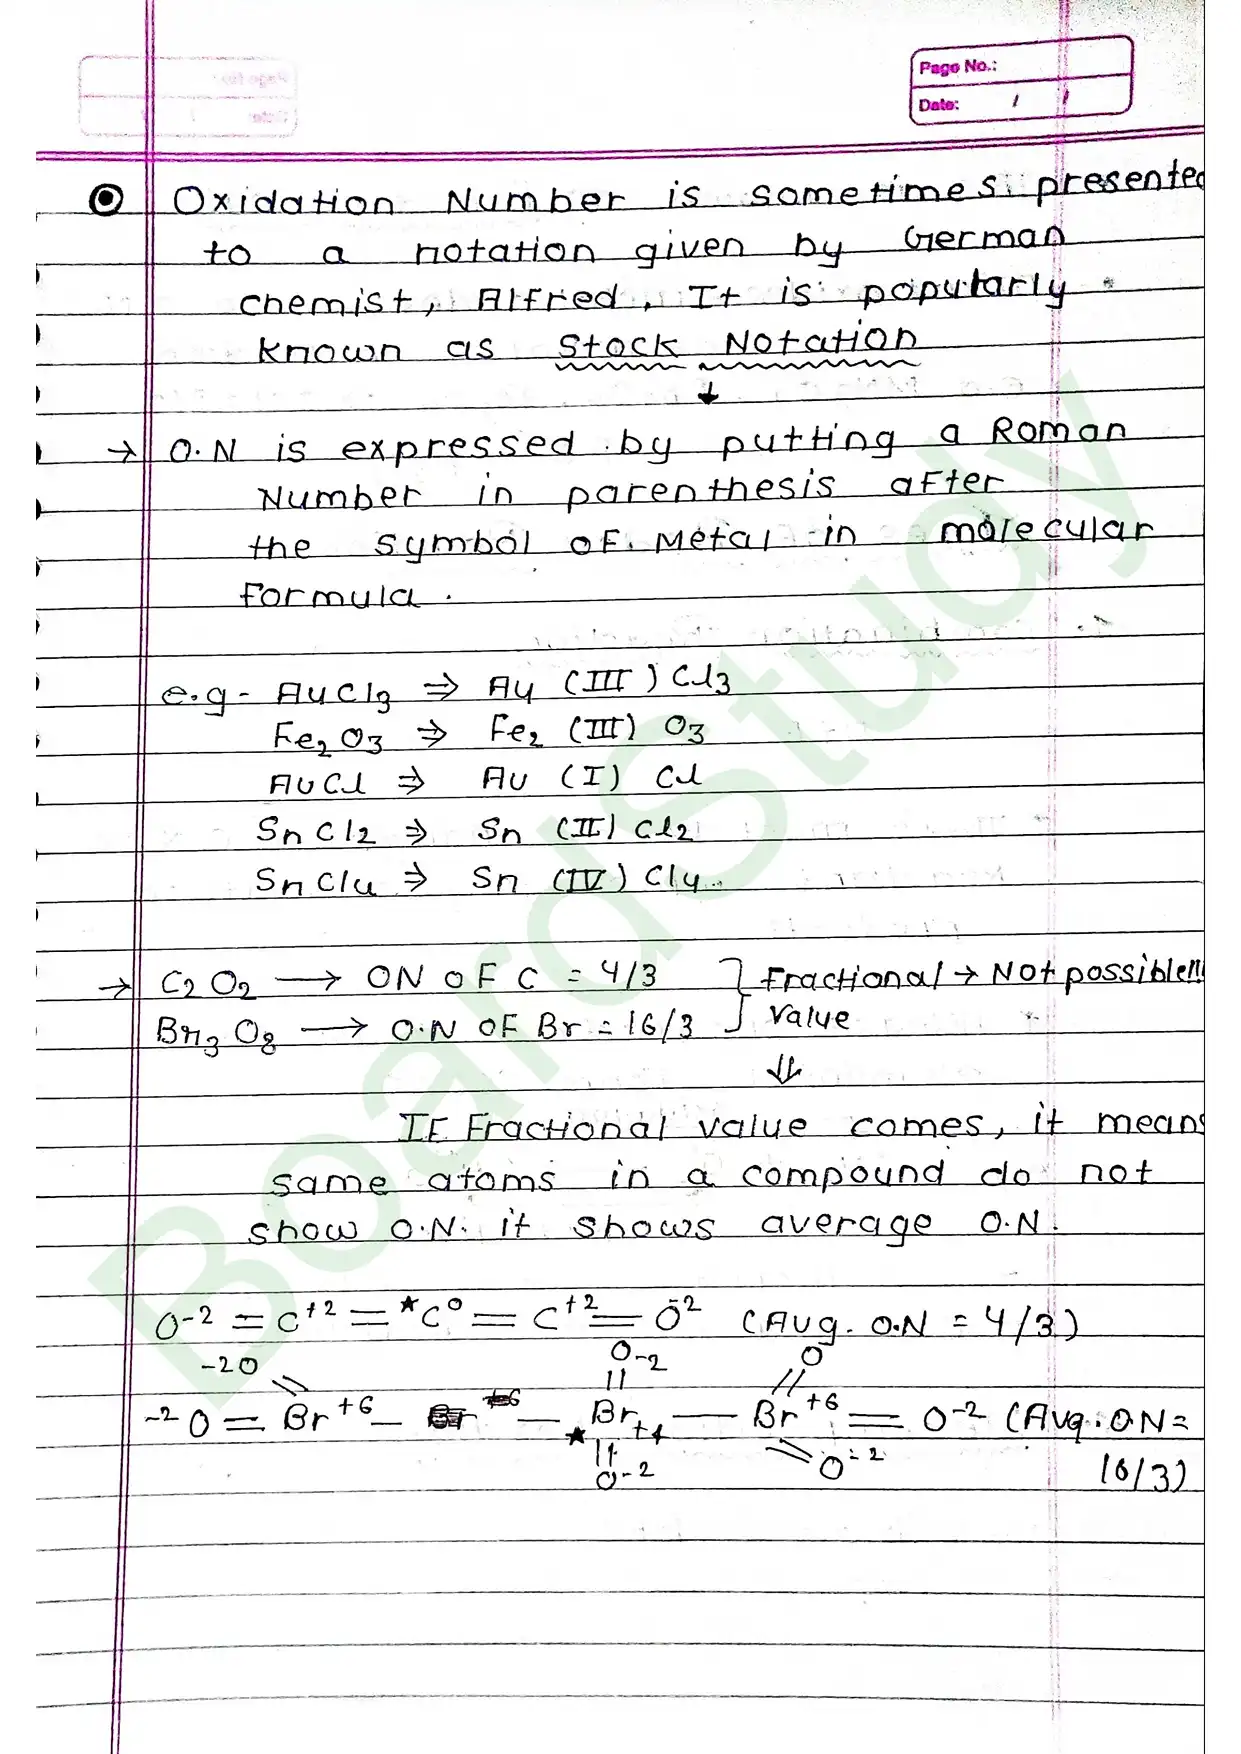 Page No.:
Date: / /
Oxidation Number is sometimes presented
to a notation given by German
chemist, Alfred. It is popularly
known as Stock Notation
↓
→ O.N is expressed by putting a Roman
Number in parenthesis after
the symbol of Metal in molecular
formula.
e.g- AuCl3 ⇒ Au (III) Cl3
Fe2O3 ⇒ Fe2 (III) O3
AuCl ⇒ Au (I) Cl
SnCl2 ⇒ Sn (II) Cl2
SnCl4 ⇒ Sn (IV) Cl4
→ C2O2 → ON OF C = 4/3 } Fractional → Not possible!!!
Br3O8 → O.N OF Br = 16/3 } value
⇓
If Fractional value comes, it means
same atoms in a compound do not
show O.N. it shows average O.N.
O-2 = C+2 = *C0 = C+2 = O-2 (Avg. O.N = 4/3)
-2O O-2 O
-2O = Br+6 - - Br+4 - Br+6 = O-2 (Avg. O.N =
* O-2 O-2 16/3)
BoardStudy